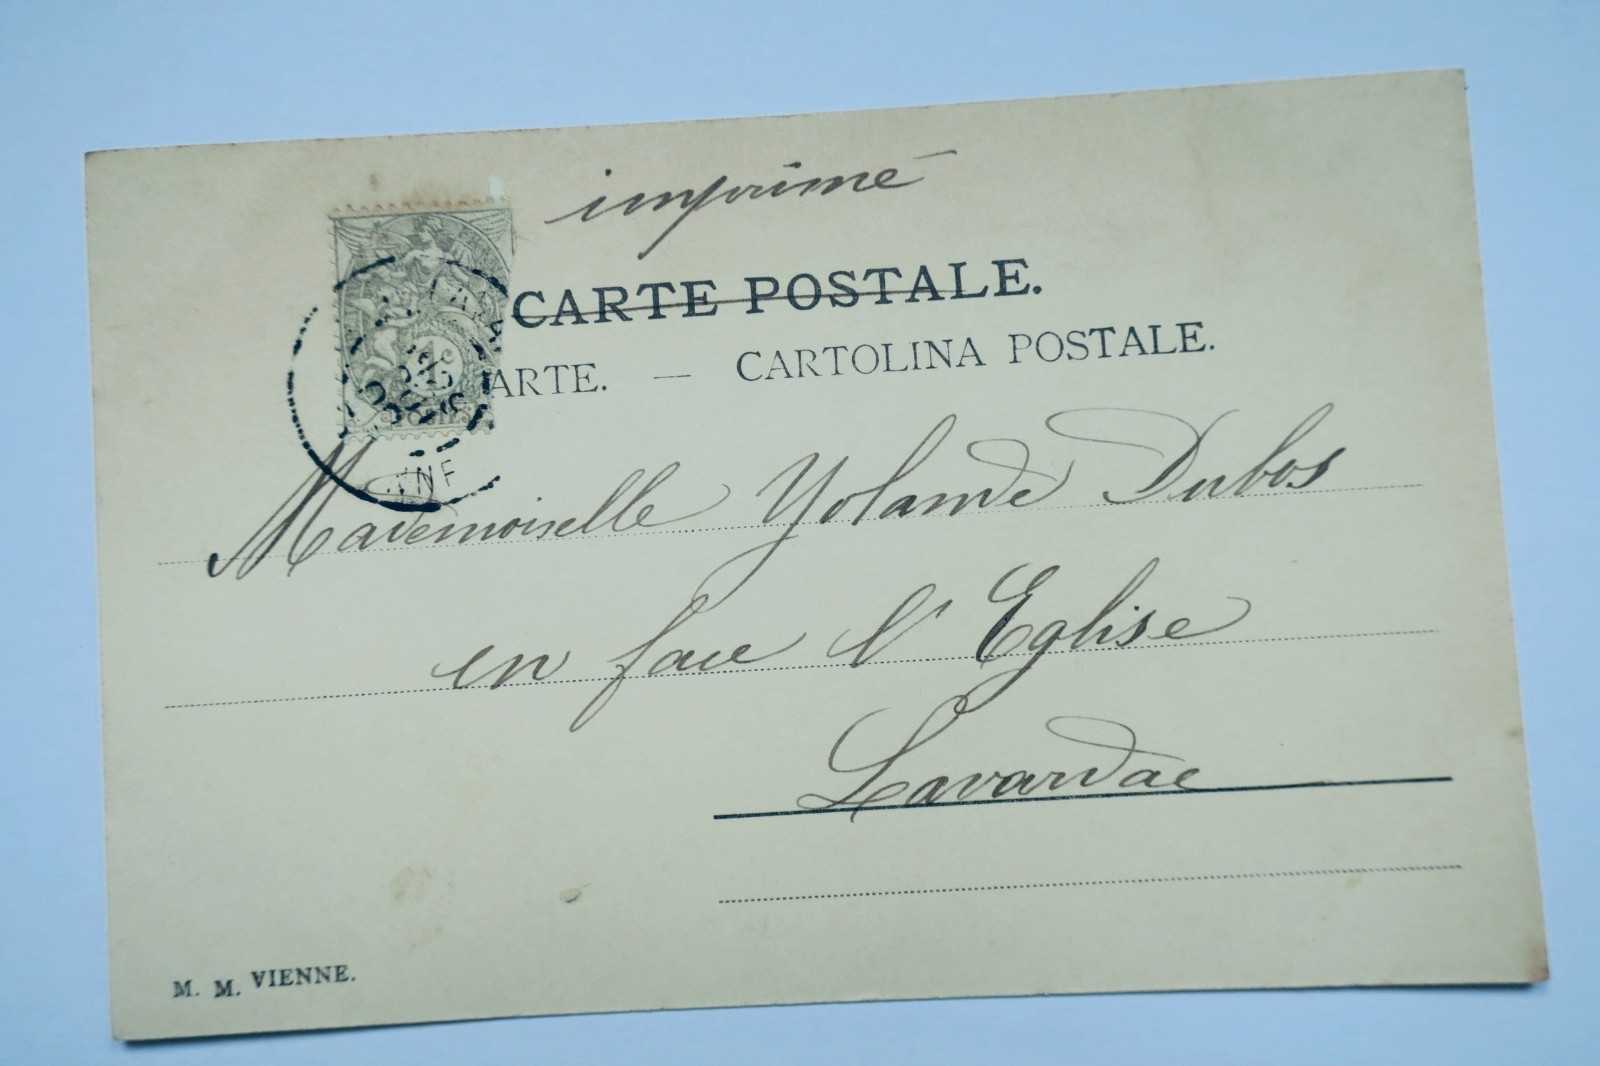 imprimé
CARTE POSTALE.
ARTE. — CARTOLINA POSTALE.
1c
POSTES
Mademoiselle Yolande Dubos
en face l'Eglise
Lavardac
M. M. VIENNE.